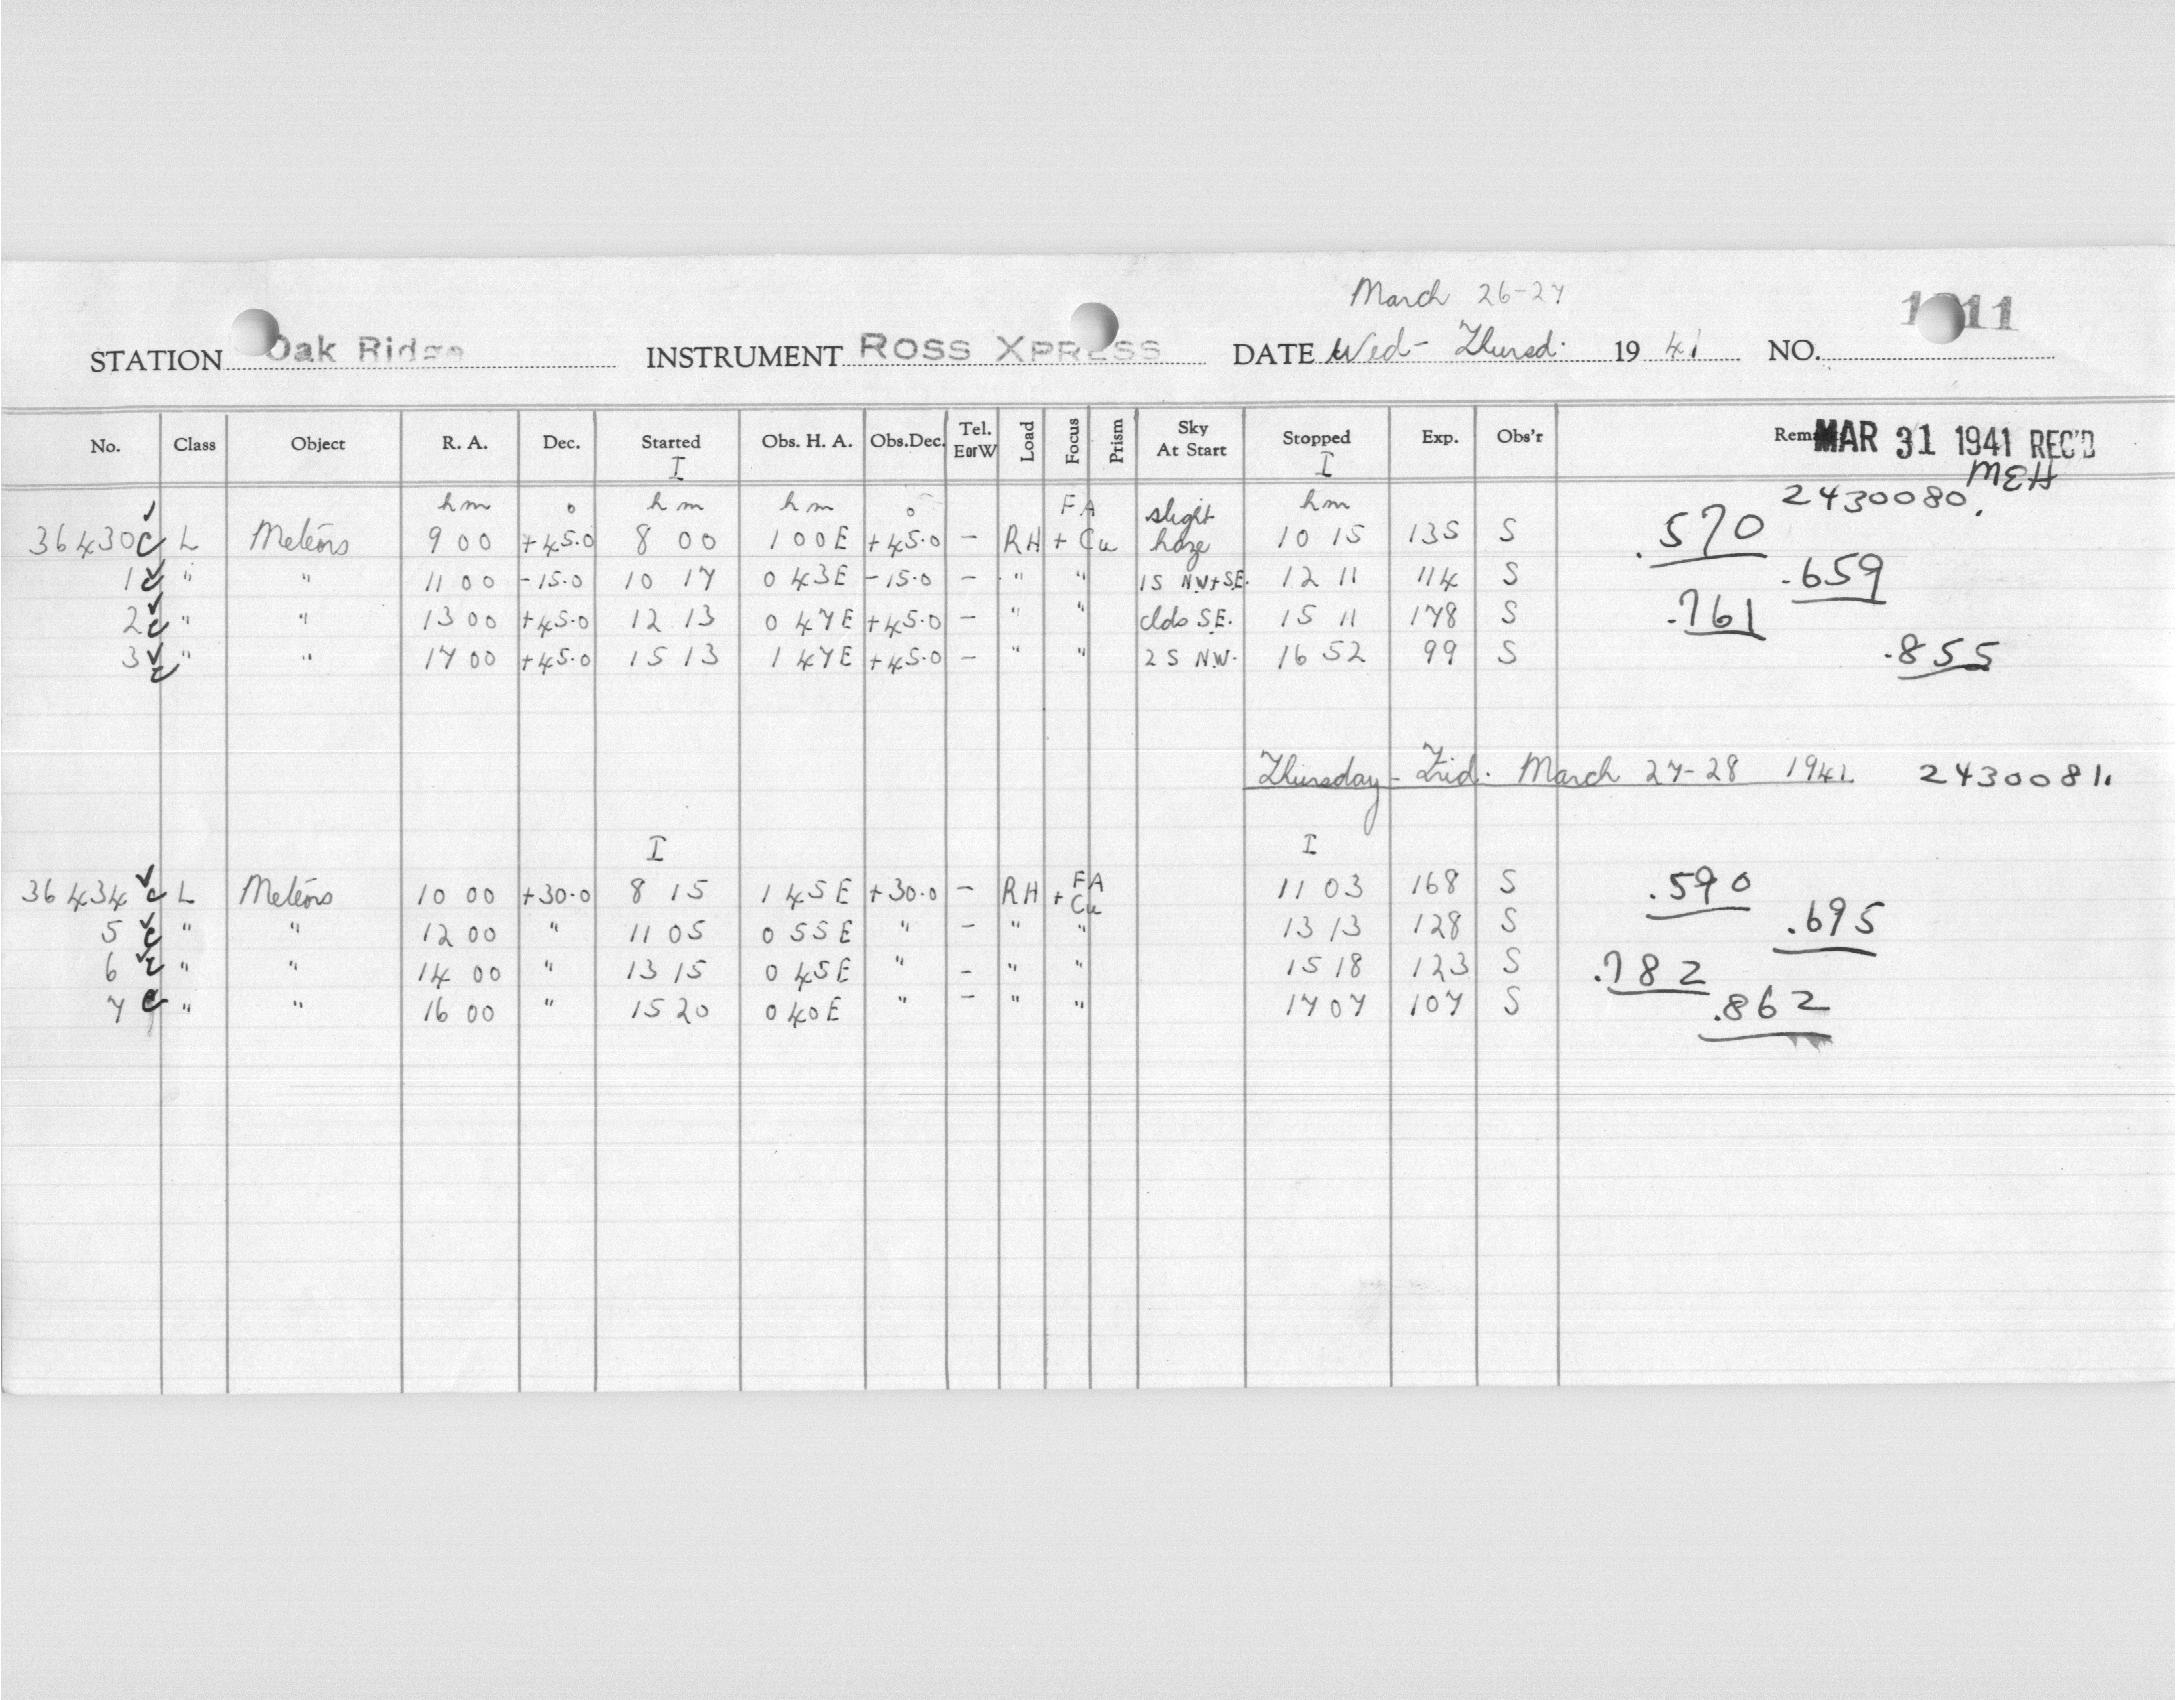 March 26-27
STATION Oak Ridge INSTRUMENT ROSS XPRESS DATE Wed- Thursd. 19 41 NO. 11
No. Class Object R. A. Dec. Started Obs. H. A. Obs.Dec. Tel. E or W Load Focus Prism Sky At Start Stopped Exp. Obs'r MAR 31 1941 REC'D
I I MEH
h m ° h m h m ° FA h m 2430080.
36430 c L Meteors 9 00 +45.0 8 00 1 00E +45.0 - RH + Cu slight haze 10 15 135 S .570
1 c " " 11 00 -15.0 10 17 0 43E -15.0 - " " 1S NW+SE. 12 11 114 S .659
2 c " " 13 00 +45.0 12 13 0 47E +45.0 - " " clds SE. 15 11 178 S .761
3 c " " 17 00 +45.0 15 13 1 47E +45.0 - " " 2 S N.W. 16 52 99 S .855
Thursday - Frid. March 27-28 1941 2430081.
I I
36434 c L Meteors 10 00 +30.0 8 15 1 45E +30.0 - RH + FA Cu 11 03 168 S .590
5 c " " 12 00 " 11 05 0 55E " - " " 13 13 128 S .695
6 c " " 14 00 " 13 15 0 45E " - " " 15 18 123 S .782
7 c " " 16 00 " 15 20 0 40E " - " " 17 07 107 S .862